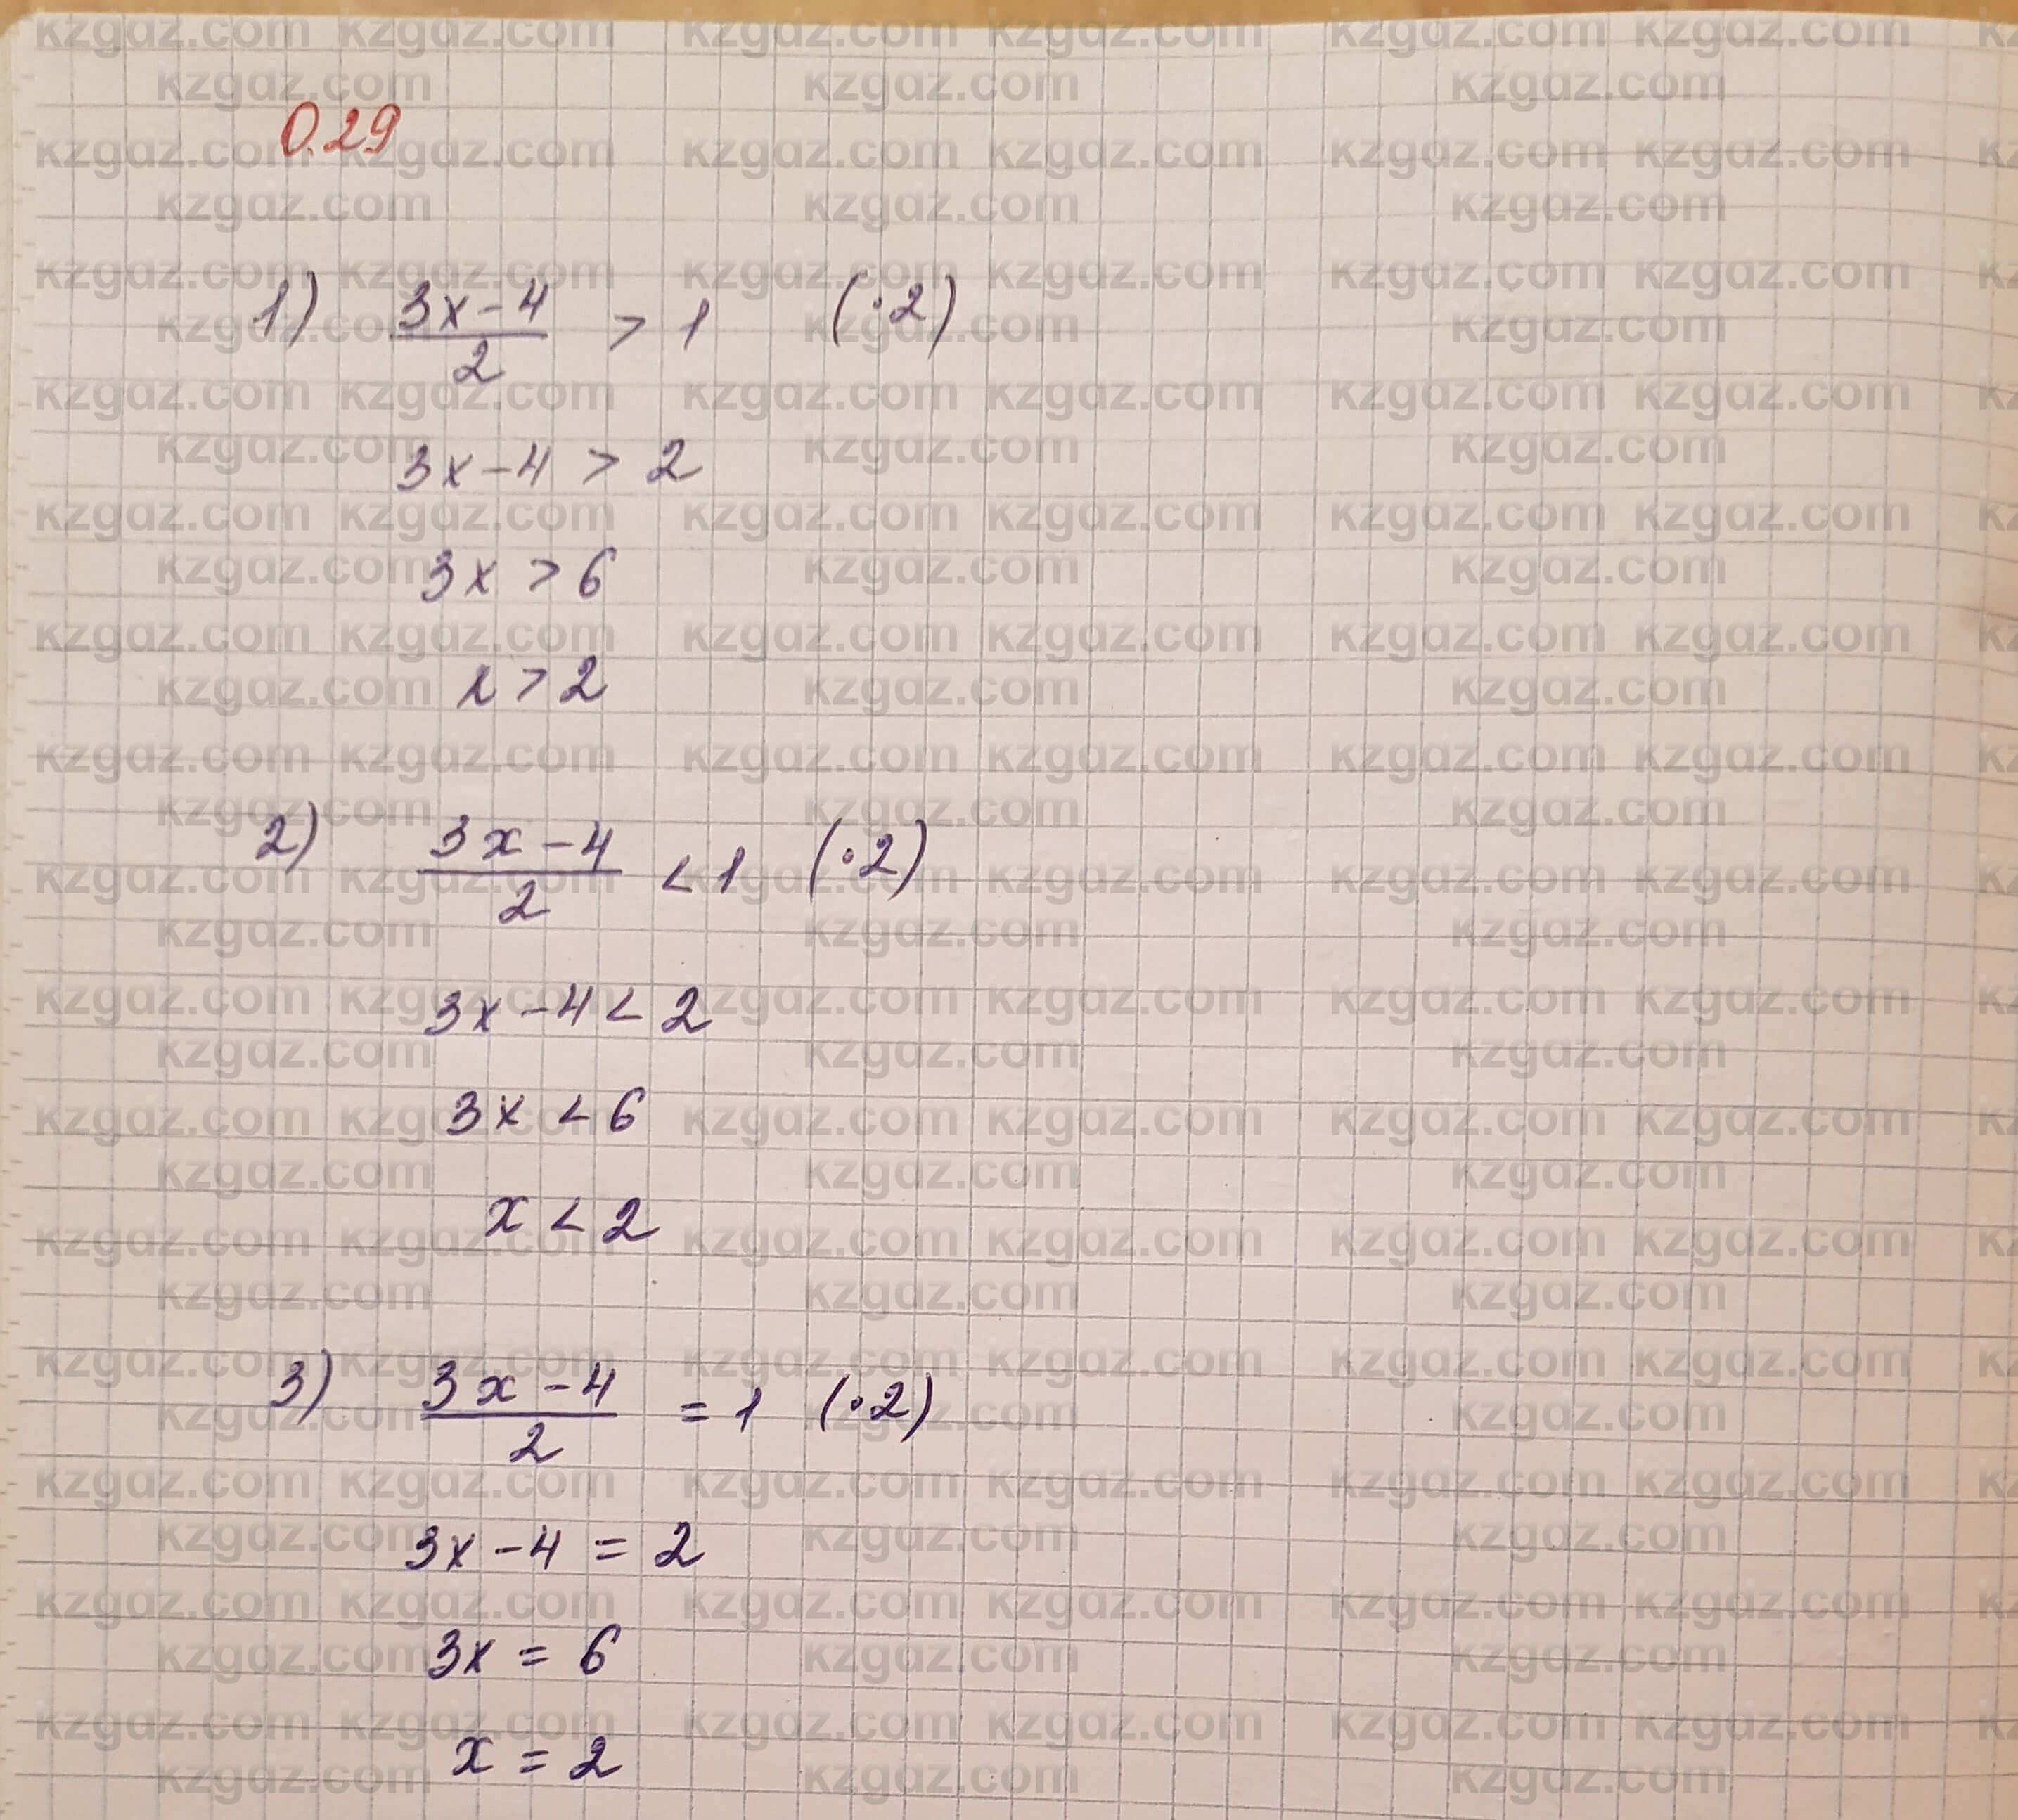 0.29
1) (3x-4)/2 > 1 (·2)
3x-4 > 2
3x > 6
x > 2
2) (3x-4)/2 < 1 (·2)
3x-4 < 2
3x < 6
x < 2
3) (3x-4)/2 = 1 (·2)
3x-4 = 2
3x = 6
x = 2
kzgaz.com